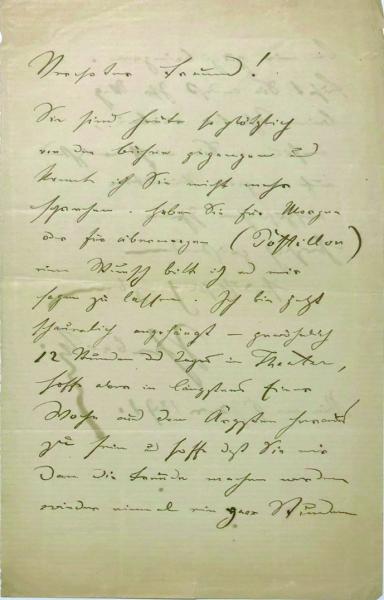 Verehrter Freund!
Sie sind heute so plötzlich
von der Bühne gegangen u
konnte ich Sie nicht mehr
sprechen. Haben Sie für Morgen
oder für übermorgen (Postillon)
einen Wunsch bitt ich es mir
sagen zu lassen. Ich bin jetzt
schauerlich angehängt – gewöhnlich
12 Stunden des Tages im Theater,
hoffe aber in längstens einer
Woche aus dem Ärgsten heraus
zu sein u hoffe daß Sie mir
dann die Freude machen werden
wieder einmal ein paar Stunden